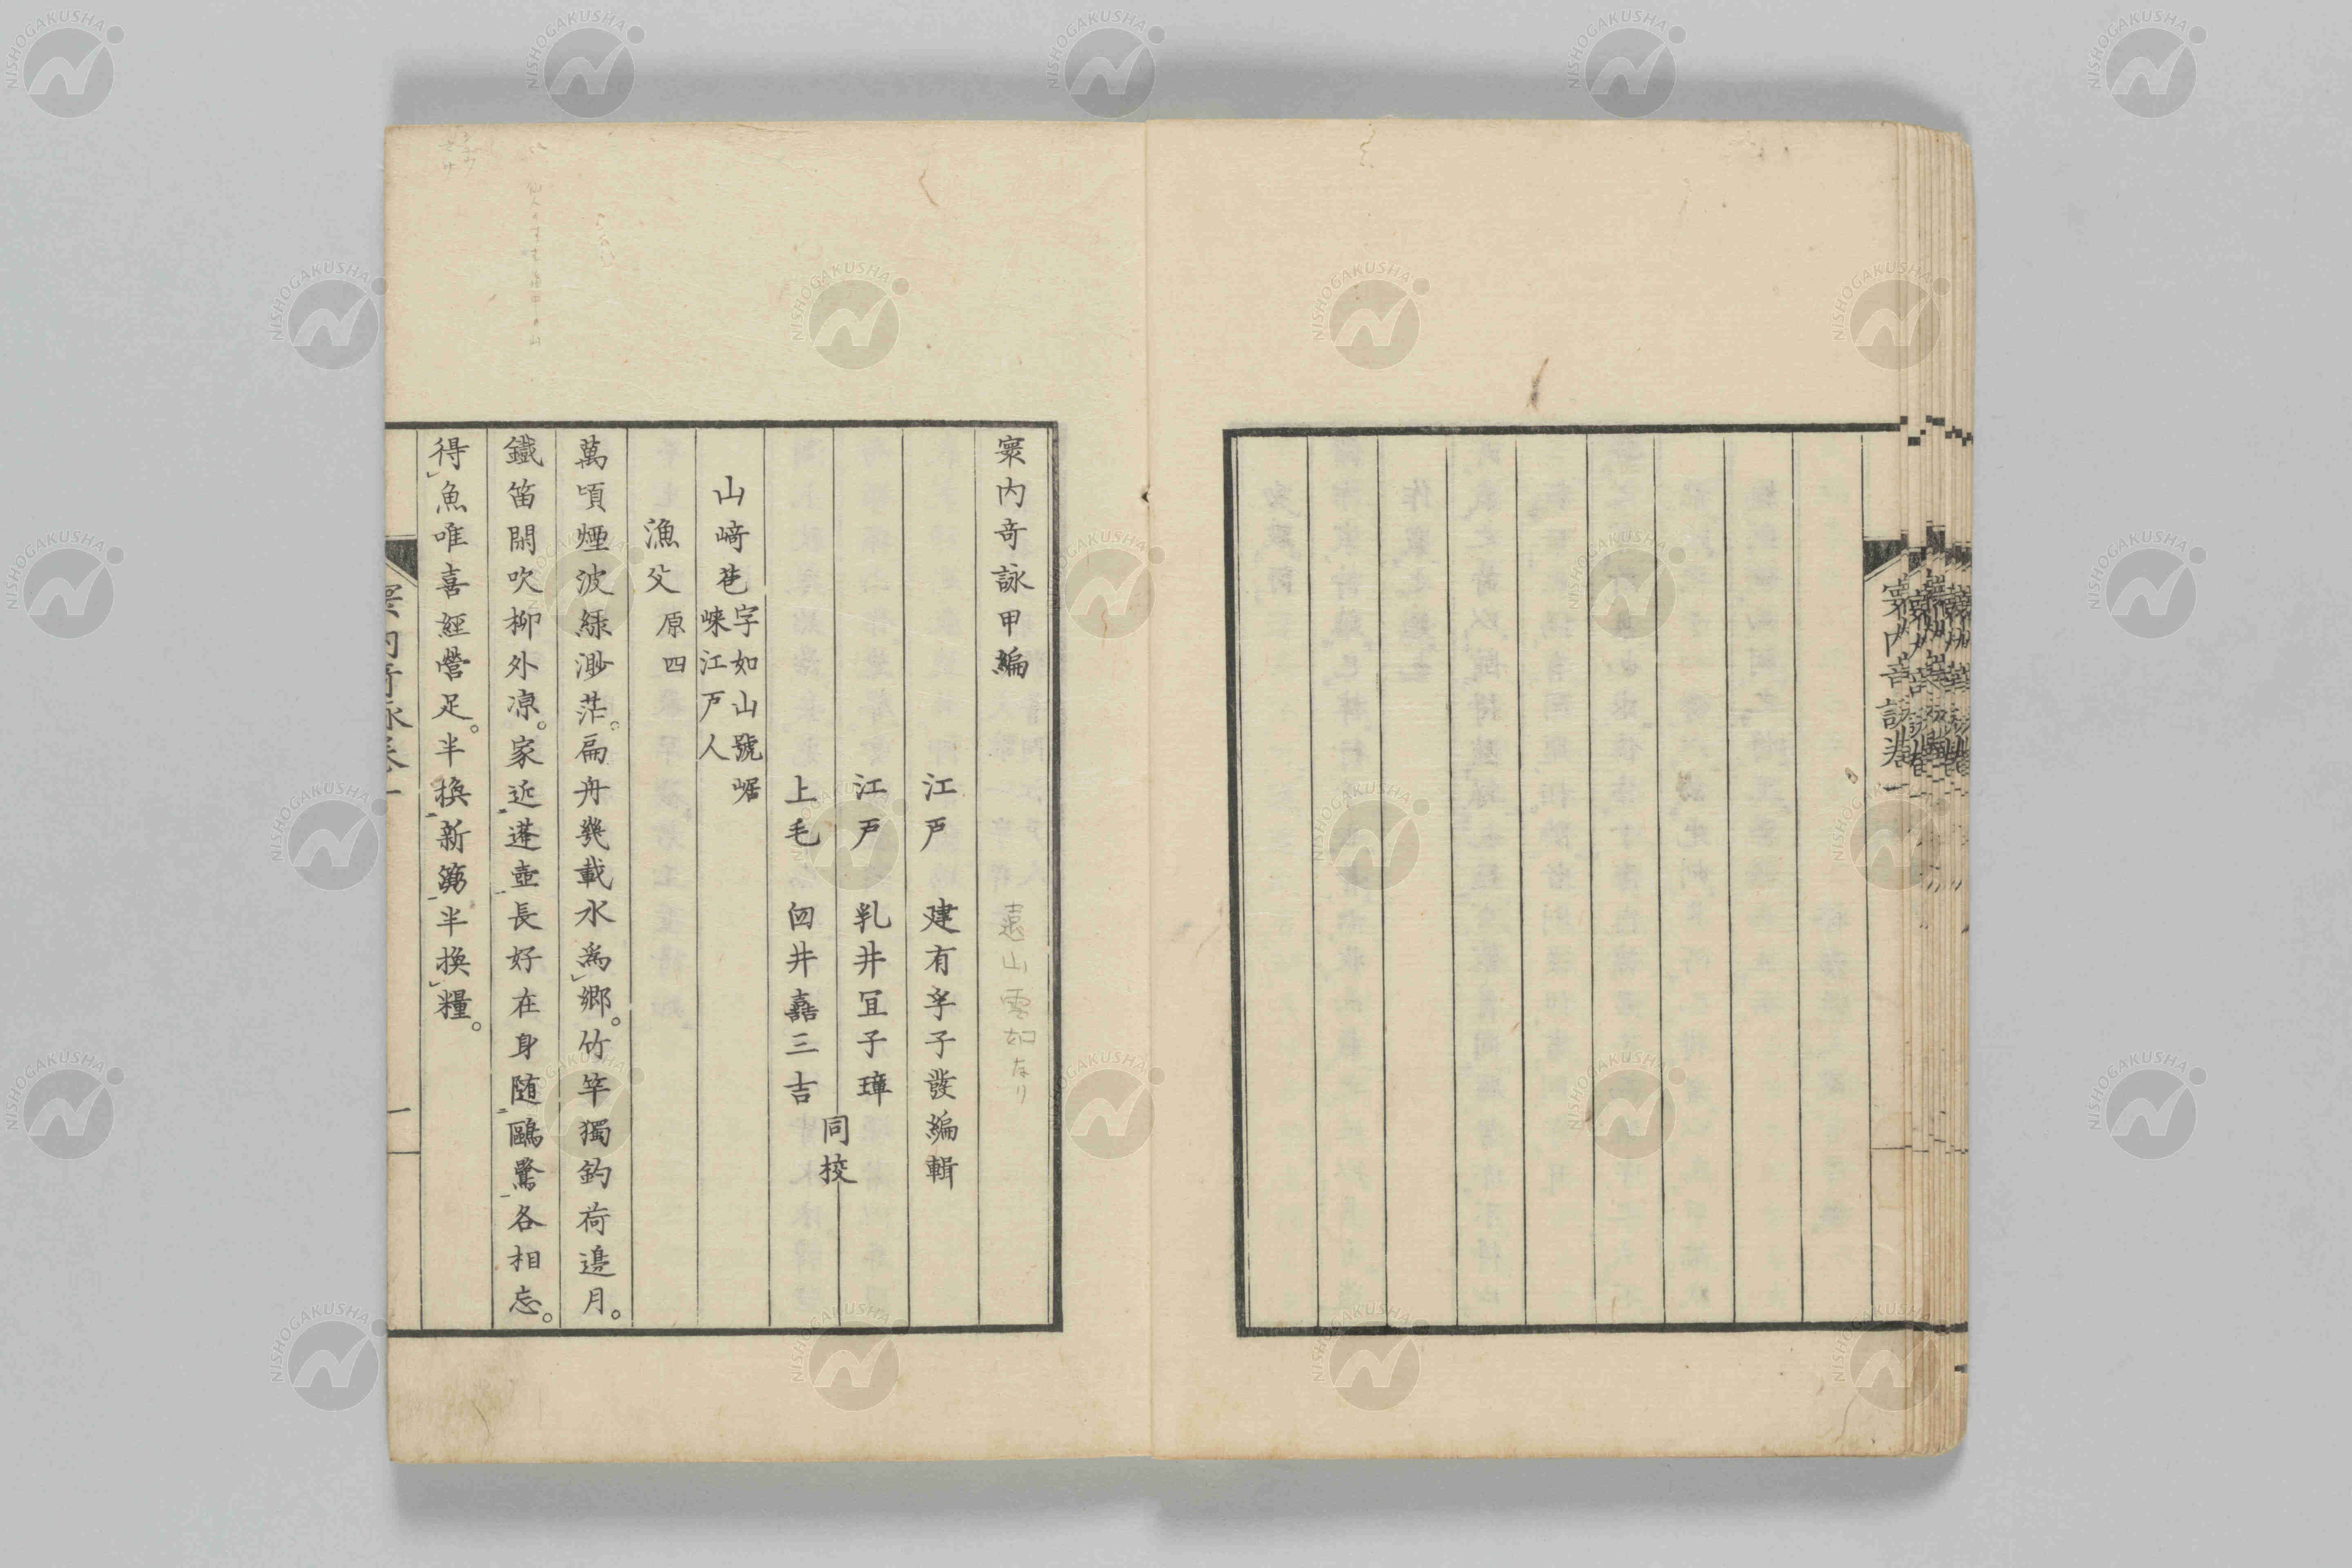 寰内奇詠甲編
遠山雲如なり
江戸 建有孚子發編輯
江戸 乳井冝子璋
上毛 囟井嘉三吉
同校
山﨑苞 字如山號崌
崍江戸人
漁父 原四
萬頃煙波綠渺茫。扁舟幾載水爲鄉。竹竿獨釣荷邊月。
鐵笛閒吹柳外凉。家近蓬壺長好在身随鷗鷺各相忘。
得魚唯喜經營足。半換新篘半換糧。
一
NISHOGAKUSHA